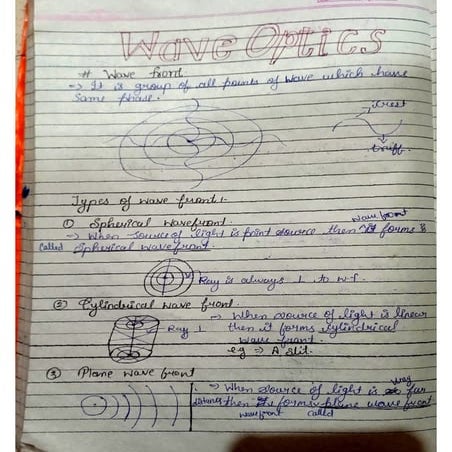 Wave Optics
# Wave front
→ It is group of all points of wave which have
same phase.
crest
truff.
Types of wave front :-
① Spherical wavefront.
wavefront
→ When source of light is point source then it forms is
called Spherical wavefront.
Ray is always ⊥ to w.f.
② Cylindrical wave front.
Ray ⊥
→ When source of light is linear
then it forms cylindrical
wave front.
eg → A slit.
③ Plane wave front
very
→ When source of light is far
distance then its forms plane wave front
wavefront called